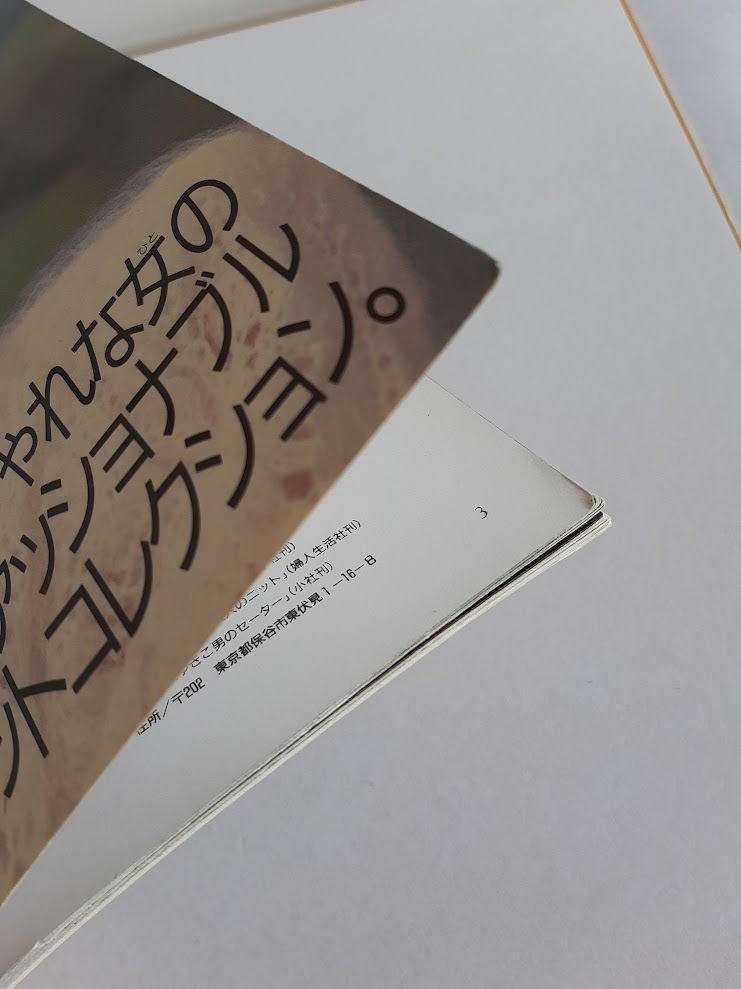 ゃれな女のひと
ァッショナブル
ットコレクション。
社刊）
人のニット」（婦人生活社刊）
ゆきこ男のセーター」（小社刊）
住所／〒202　東京都保谷市東伏見1−16−8
3